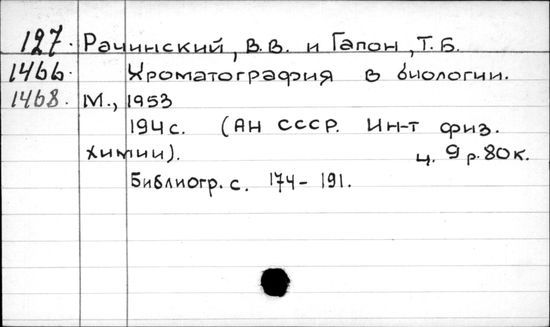 127. Рачинский, В.В. и Гапон, Т.Б.
1466. Хроматография в биологии.
1468. М., 1953
194 с. (АН СССР. Ин-т физ.
химии). ц. 9 р. 80 к.
Библиогр. с. 174-191.